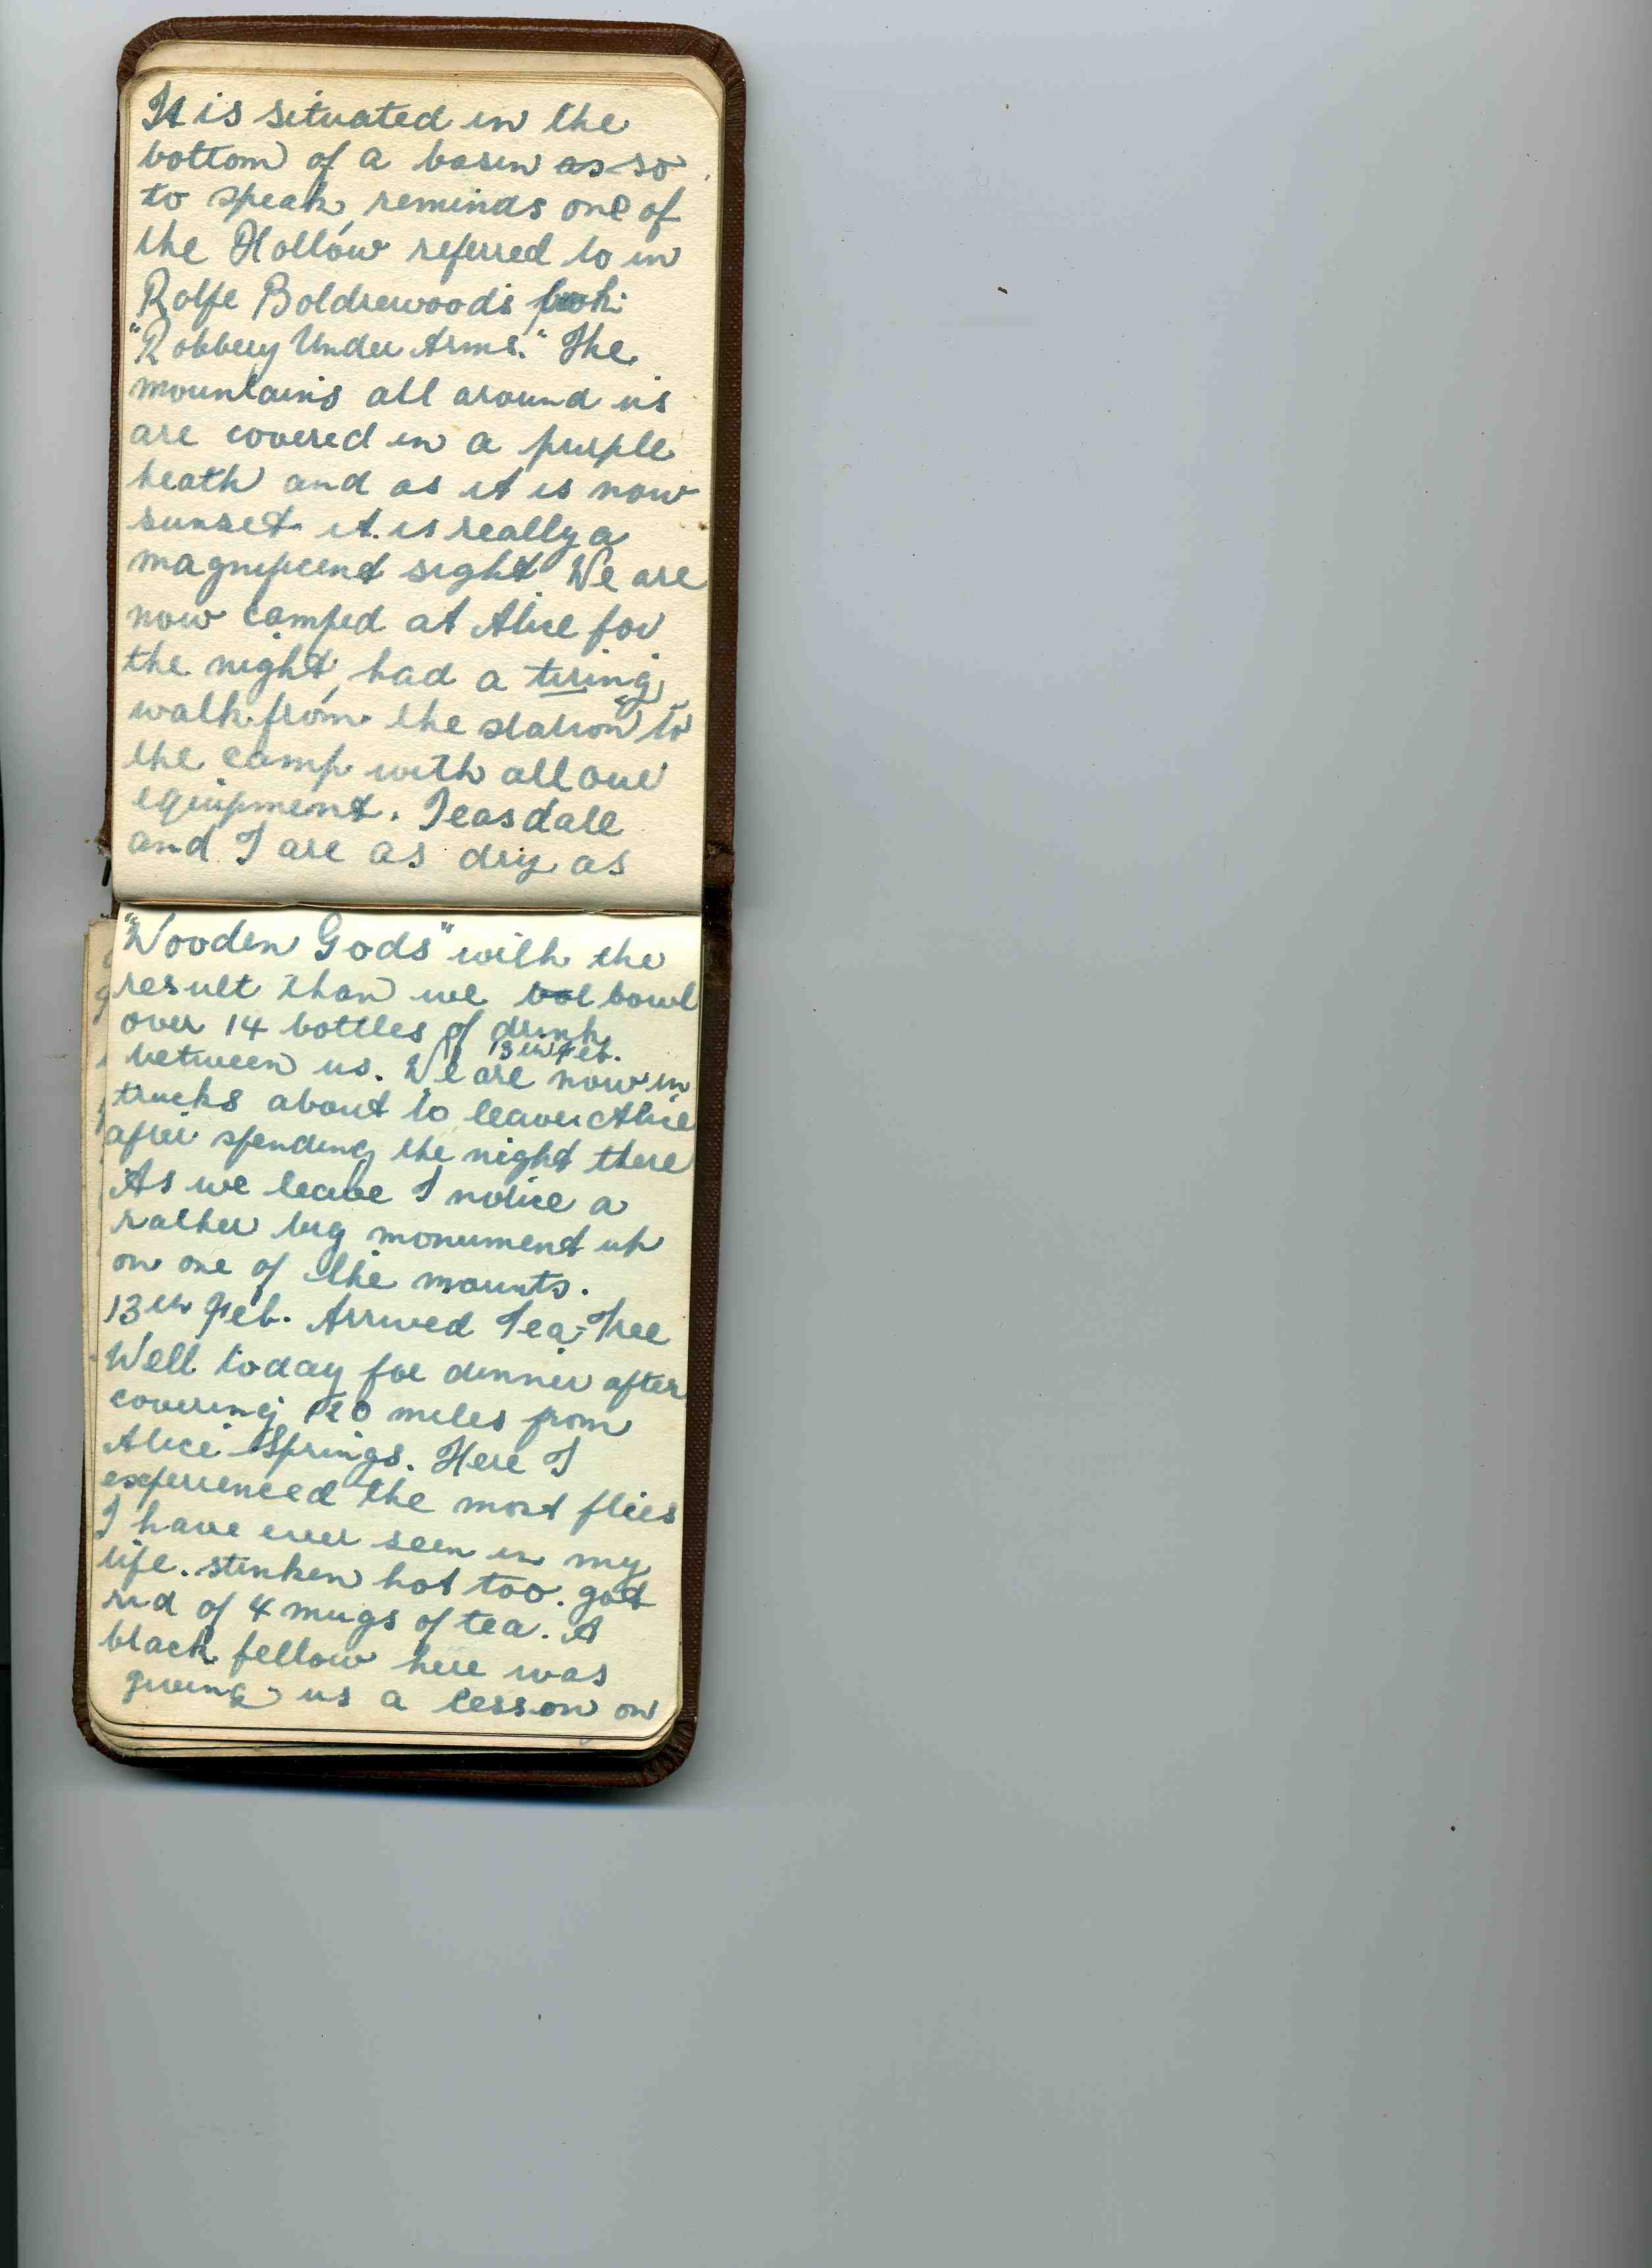 It is situated in the
bottom of a basin as so
to speak, reminds one of
the Hollow referred to in
Rolfe Boldrewood's book
"Robbery Under Arms." The
mountains all around us
are covered in a purple
heath and as it is now
sunset it is really a
magnificent sight We are
now camped at Alice for
the night, had a tiring
walk from the station to
the camp with all our
equipment. Teasdale
and I are as dry as
"Wooden Gods" with the
result than we bol bowl
over 14 bottles of drink
13th Feb.
between us. We are now in
trucks about to leave Alice
after spending the night there
As we leave I notice a
rather big monument up
on one of the mounts.
13th Feb. Arrived Tea-Tree
Well today for dinner after
covering 120 miles from
Alice Springs. Here I
experienced the most flies
I have ever seen in my
life. stinken hot too. got
rid of 4 mugs of tea. A
black fellow here was
giving us a lesson on